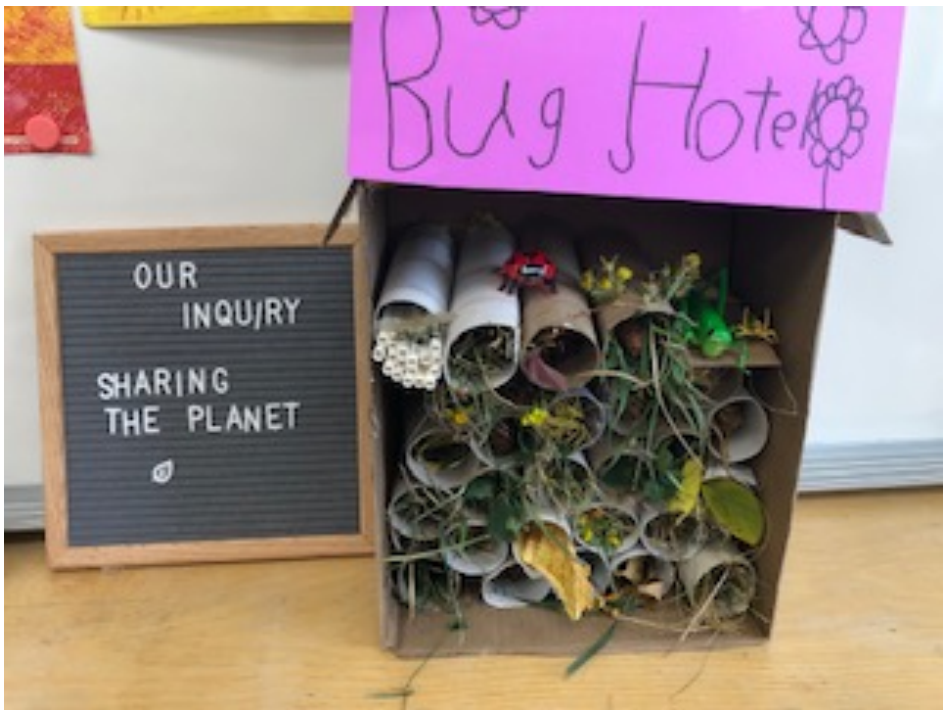 Bug Hotel
OUR
INQUIRY
SHARING
THE PLANET